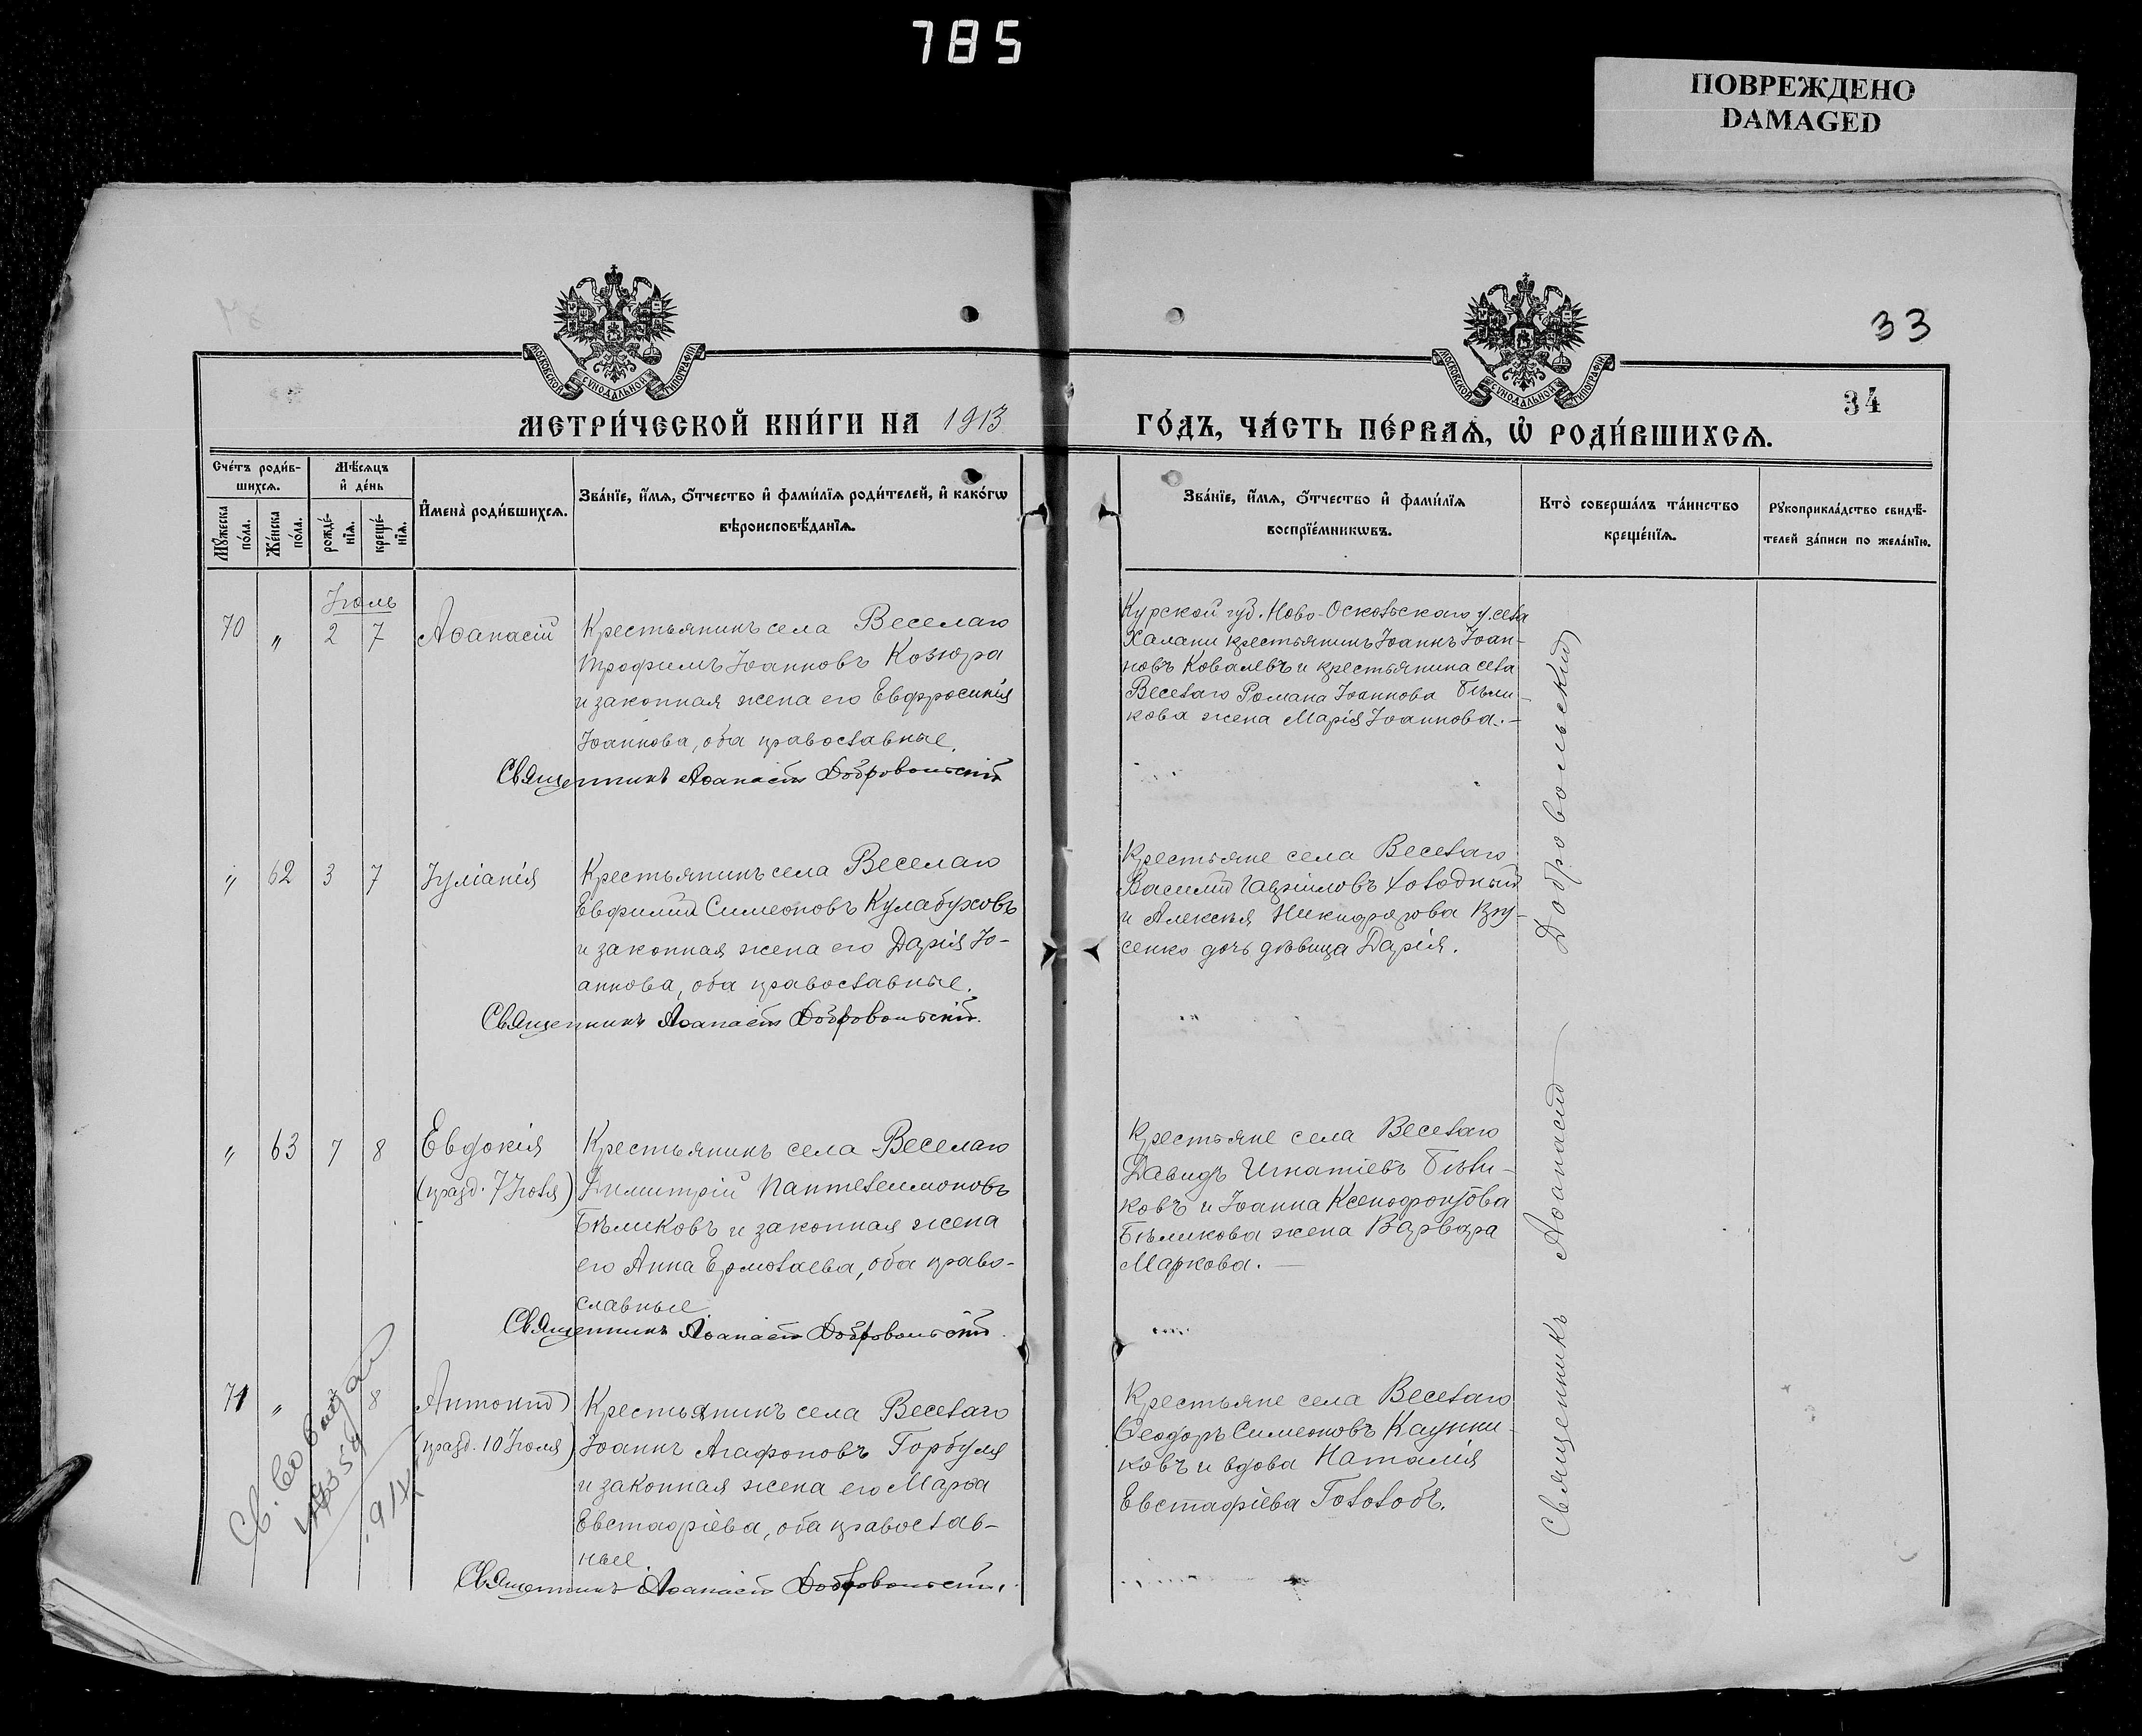 785
ПОВРЕЖДЕНО
DAMAGED
33
34
МОСКОВСКОЙ СУНОДАЛЬНОЙ ТИПОГРАФІИ
МОСКОВСКОЙ СУНОДАЛЬНОЙ ТИПОГРАФІИ
МЕТРИ́ЧЕСКОЙ КНИ́ГИ НА 1913
ГО́ДЪ, ЧА́СТЬ ПЕ́РВАѦ, Ѡ҆ РОДИ́ВШИХСѦ.
Сче́тъ роди́в-
шихсѧ.
Мꙋ́жеска
по́ла.
Же́нска
по́ла.
Мѣ́сѧцъ
и҆ де́нь
рожде́-
нїѧ.
креще́-
нїѧ.
И҆мена̀ роди́вшихсѧ.
Зва́нїе, и҆́мѧ, ѻ҆́тчество и҆ фами́лїѧ роди́телей, и҆ како́гѡ
вѣроисповѣ́данїѧ.
Зва́нїе, и҆́мѧ, ѻ҆́тчество и҆ фами́лїѧ
воспрїе́мникѡвъ.
Кто̀ соверша́лъ та́инство
креще́нїѧ.
Рꙋкоприкла́дство свидѣ́-
телей за́писи по жела́нїю.
Іюль
70 " 2 7 Аѳанасій
Крестьянинъ села Веселаго
Трофимъ Іоанновъ Козюра
и законная жена его Евфросинія
Іоаннова, оба православные.
Священникъ Аѳанасій Добровольскій
Курской губ. Ново-Оскольскаго у. села
Халани крестьянинъ Іоаннъ Іоан-
новъ Ковалевъ и крестьянина села
Веселаго Романа Іоаннова Бѣли-
кова жена Марія Іоаннова.
" 62 3 7 Іуліанія
Крестьянинъ села Веселаго
Евфимій Симеоновъ Кулабуховъ
и законная жена его Дарія Іо-
аннова, оба православные.
Священникъ Аѳанасій Добровольскій.
Крестьяне села Веселаго
Василій Гавріиловъ Холодный
и Алексѣя Никифорова
сенко дочь дѣвица Дарія.
" 63 7 8 Евдокія
(празд. 7 Іюля)
Крестьянинъ села Веселаго
Димитрій Пантелеимоновъ
Бѣликовъ и законная жена
его Анна Ермолаева, оба право-
славные
Священникъ Аѳанасій Добровольскій.
Крестьяне села Веселаго
Давидъ Игнатіевъ Бѣли-
ковъ и Іоанна Ксенофонтова
Бѣликова жена Варвара
Маркова.
71 " 8 Антоній
(празд. 10 Іюля)
Крестьянинъ села Веселаго
Іоаннъ Агафоновъ Горбуля
и законная жена его Марѳа
Евстафіева, оба православ-
ные.
Священникъ Аѳанасій Добровольскій.
Крестьяне села Веселаго
Ѳеодоръ Симеоновъ
ковъ и вдова Наталія
Евстафіева Голобобъ.
Священникъ Аѳанасій Добровольскій